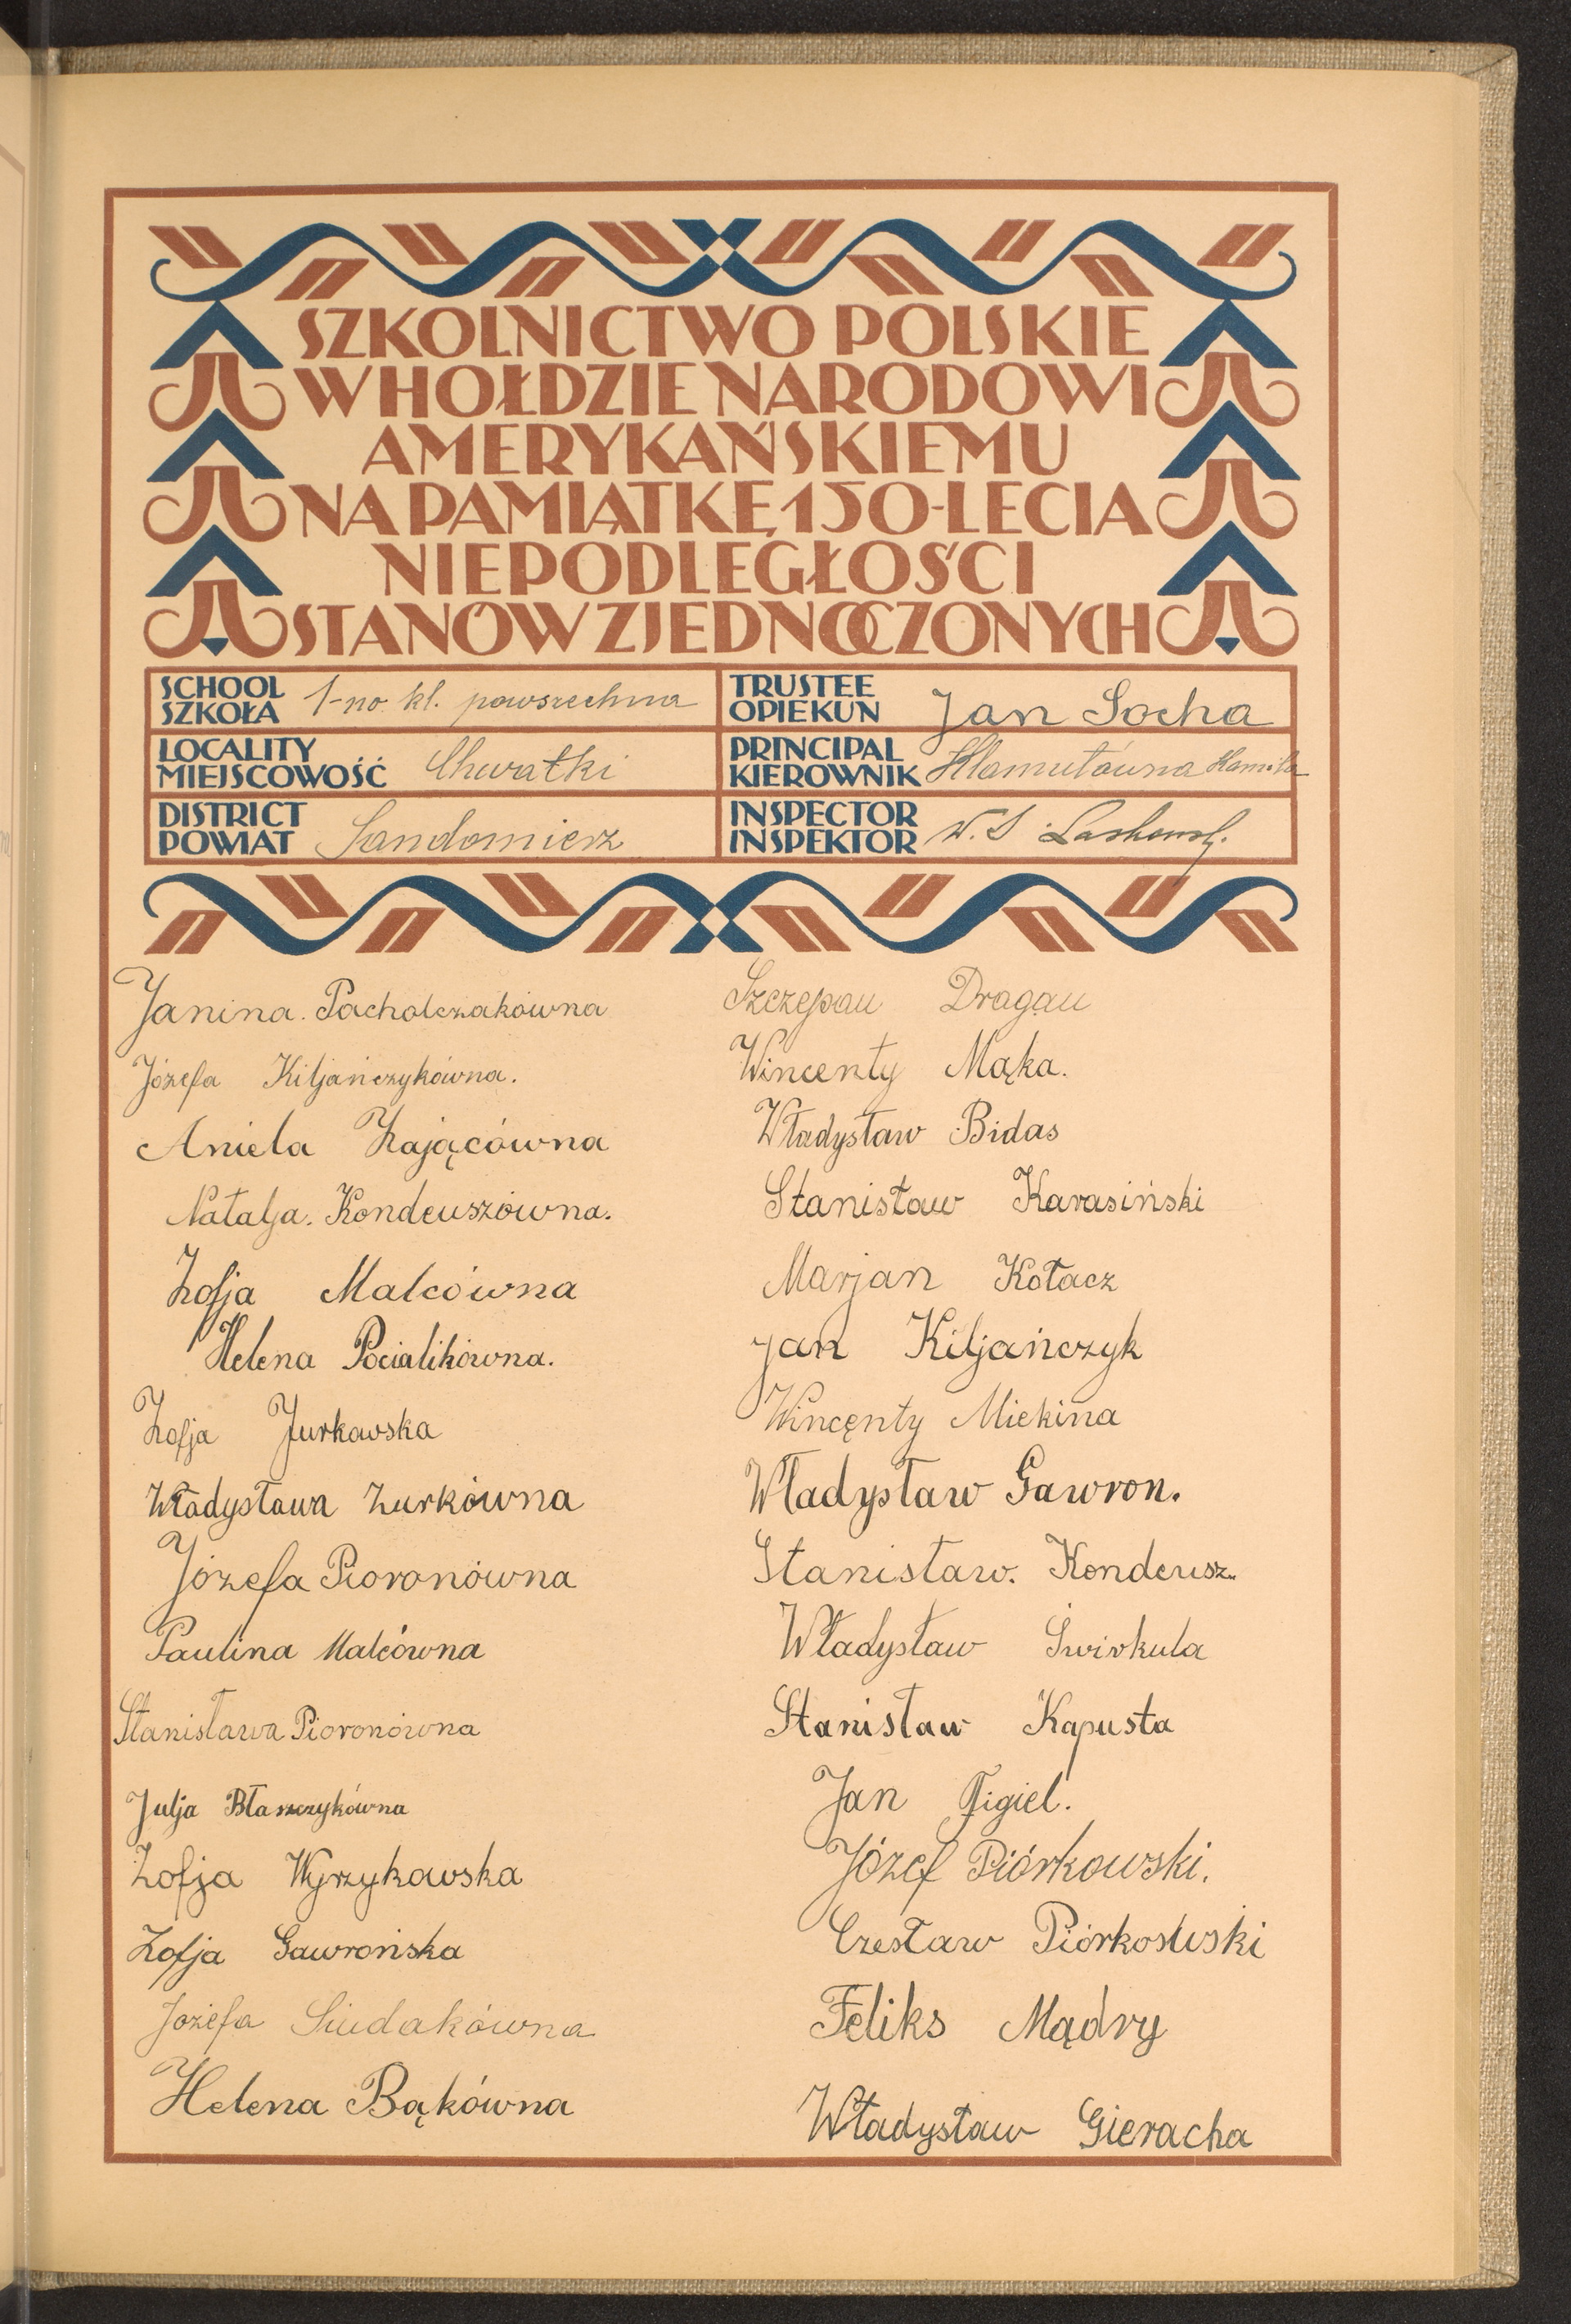 SZKOLNICTWO POLSKIE
W HOŁDZIE NARODOWI
AMERYKAŃSKIEMU
NA PAMIĄTKĘ 150-LECIA
NIEPODLEGŁOŚCI
STANÓW ZJEDNOCZONYCH
SCHOOL
SZKOŁA 1-no kl. powszechna
TRUSTEE
OPIEKUN Jan Socha
LOCALITY
MIEJSCOWOŚĆ Chwałki
PRINCIPAL
KIEROWNIK Klamutówna Kamila
DISTRICT
POWIAT Sandomierz
INSPECTOR
INSPEKTOR W. S. Laskowsk.
Janina. Pacholczakówna
Józefa Kiljańczykówna.
Aniela Zającówna
Natalja. Kondeuszówna.
Zofja Malcówna
Helena Pocialikówna.
Zofja Jurkowska
Władysława Żurkówna
Józefa Pioronówna
Paulina Malcówna
Stanisława Pioronówna
Julja Błaszczykówna
Zofja Wyrzykowska
Zofja Gawrońska
Józefa Siudakówna
Helena Bąkówna
Szczepan Dragan
Wincenty Mąka.
Władysław Bidas
Stanisław Karasiński
Marjan Kołacz
Jan Kiljańczyk
Wincęnty Miekina
Władysław Gawron.
Stanisław. Kondeusz.
Władysław Świrkula
Stanisław Kapusta
Jan Figiel.
Józef Piórkowski.
Czesław Piórkowski
Feliks Mądry
Władysław Gieracha